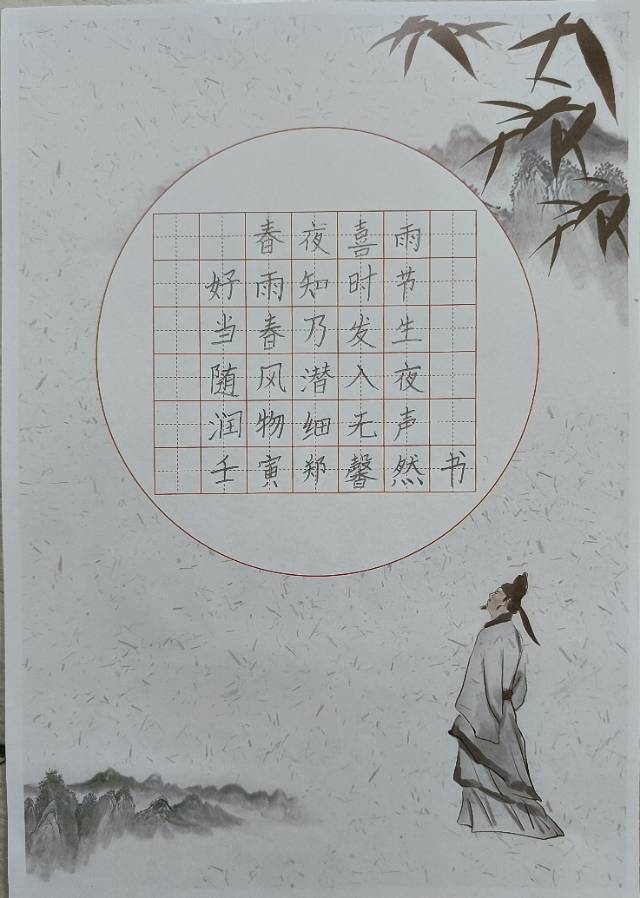 春夜喜雨
好雨知时节
当春乃发生
随风潜入夜
润物细无声
壬寅郑馨然书